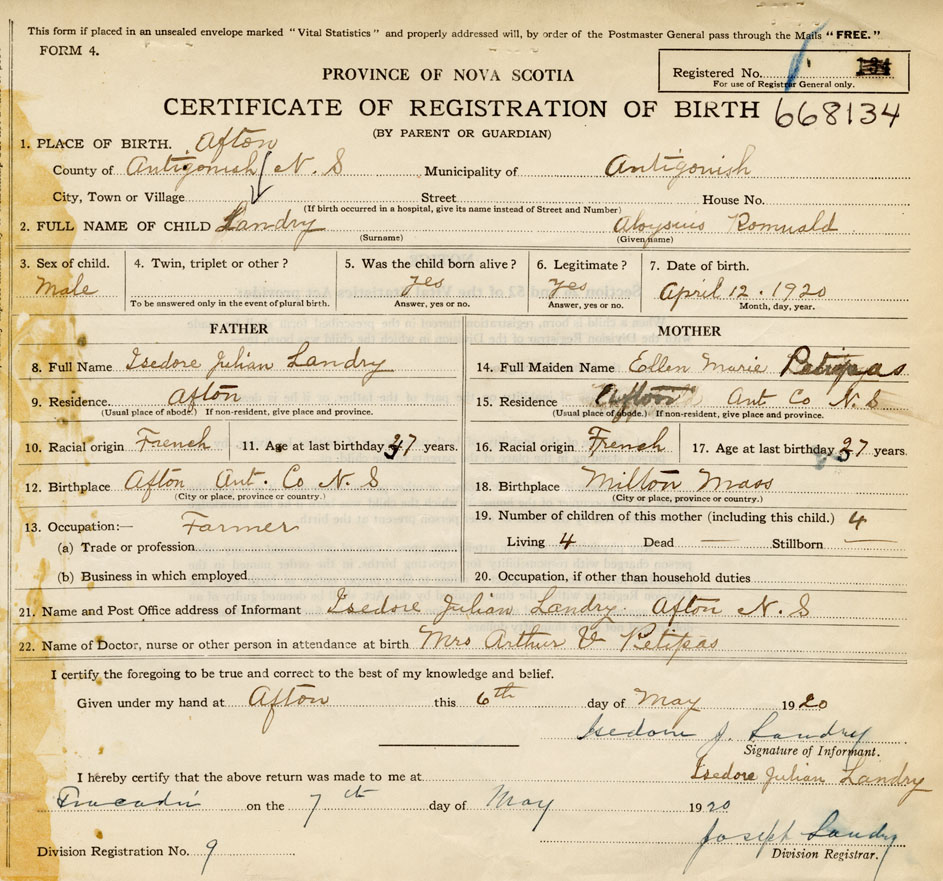 This form if placed in an unsealed envelope marked "Vital Statistics" and properly addressed will, by order of the Postmaster General pass through the Mails "FREE."
FORM 4.
PROVINCE OF NOVA SCOTIA
Registered No.
For use of Registrar General only.
CERTIFICATE OF REGISTRATION OF BIRTH 668134
(BY PARENT OR GUARDIAN)
1. PLACE OF BIRTH. Afton
County of Antigonish N. S Municipality of Antigonish
City, Town or Village Street House No.
(If birth occurred in a hospital, give its name instead of Street and Number)
2. FULL NAME OF CHILD Landry Aloysius Romuald
(Surname) (Given name)
3. Sex of child. 4. Twin, triplet or other ? 5. Was the child born alive ? 6. Legitimate ? 7. Date of birth.
Male yes yes April 12. 1920
To be answered only in the event of plural birth. Answer, yes or no. Answer, yes or no. Month, day, year.
FATHER MOTHER
8. Full Name Isedore Julian Landry 14. Full Maiden Name Ellen Marie Petipas
9. Residence. Afton 15. Residence Afton Ant Co N. S
(Usual place of abode.) If non-resident, give place and province. (Usual place of abode.) If non-resident, give place and province.
10. Racial origin French 11. Age at last birthday 37 years. 16. Racial origin French 17. Age at last birthday 37 years.
12. Birthplace Afton Ant. Co N. S 18. Birthplace Milton Mass
(City or place, province or country.) (City or place, province or country.)
13. Occupation:— Farmer 19. Number of children of this mother (including this child.) 4
(a) Trade or profession Living 4 Dead — Stillborn —
(b) Business in which employed 20. Occupation, if other than household duties
21. Name and Post Office address of Informant Isedore Julian Landry. Afton N. S
22. Name of Doctor, nurse or other person in attendance at birth Mrs Arthur V Petipas
I certify the foregoing to be true and correct to the best of my knowledge and belief.
Given under my hand at Afton this 6th day of May 1920
Isedore J. Landry
Signature of Informant.
I hereby certify that the above return was made to me at Isedore Julian Landry
Tracadie on the 7th day of May 1920
Joseph Landry
Division Registration No. 9 Division Registrar.